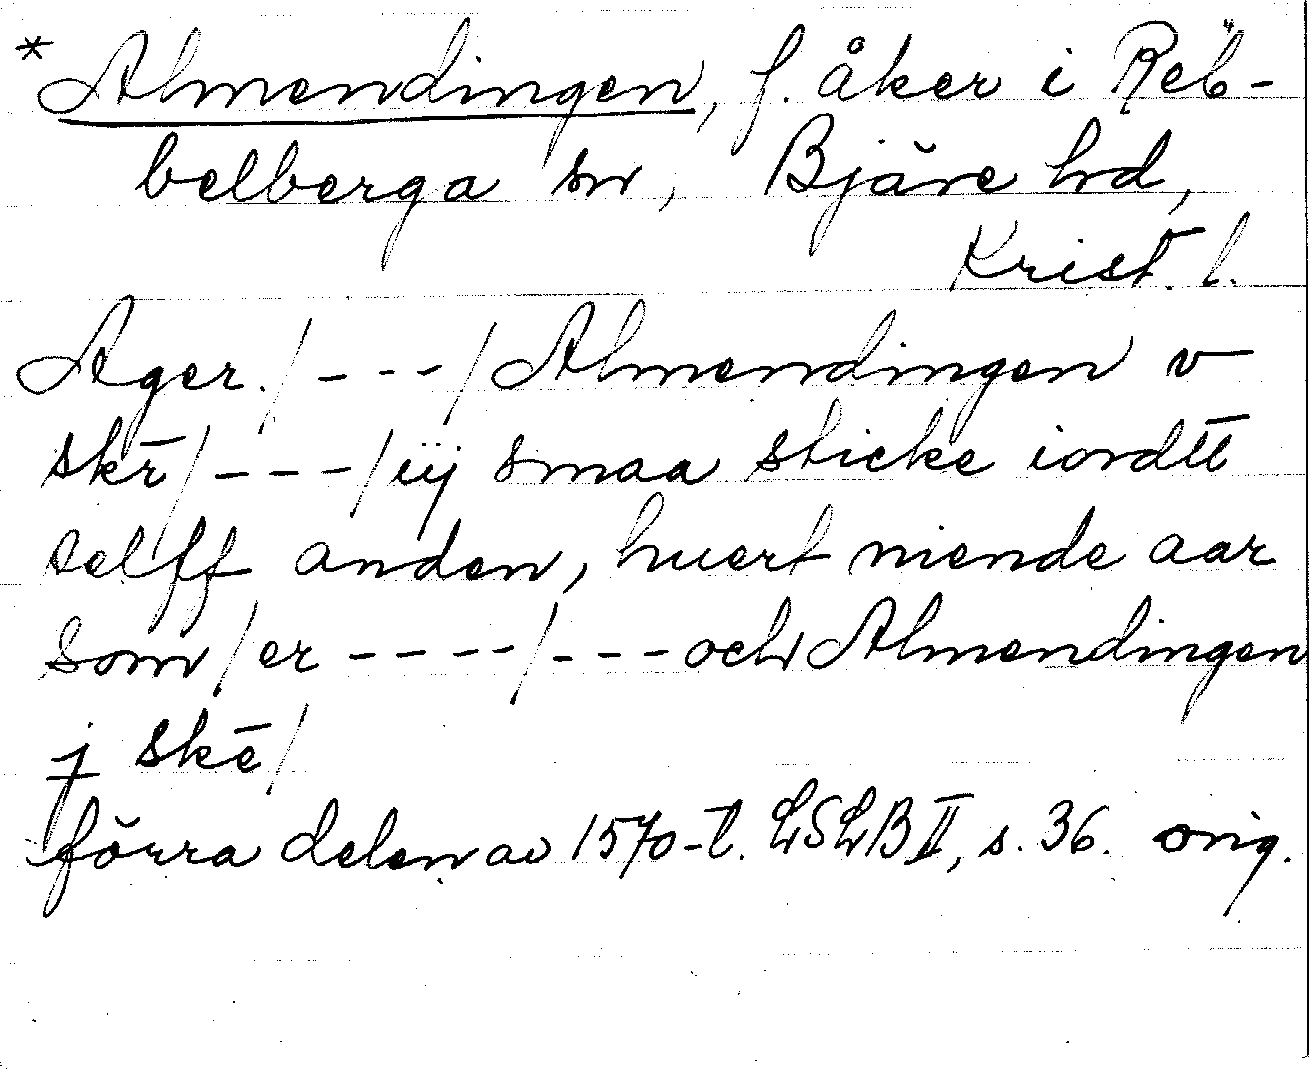 * Almendingen, f. åker i Reb-
belberga sn, Bjäre hd,
Krist. l.
Ager. / - - - / Almendingen v
skr̄ / - - - / iij smaa sticke iordtt
selff anden, huert niende aar
som / er - - - - / - - - och Almendingen
j skē /
förra delen av 1570-t. LSLB II, s. 36. orig.